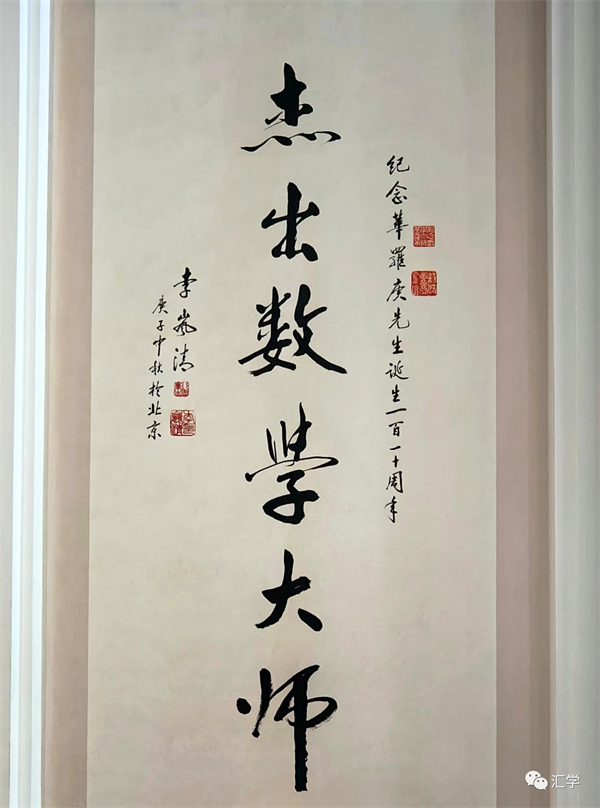 纪念華羅庚先生诞生一百一十周年
杰出数學大师
李岚清
庚子中秋於北京
汇学